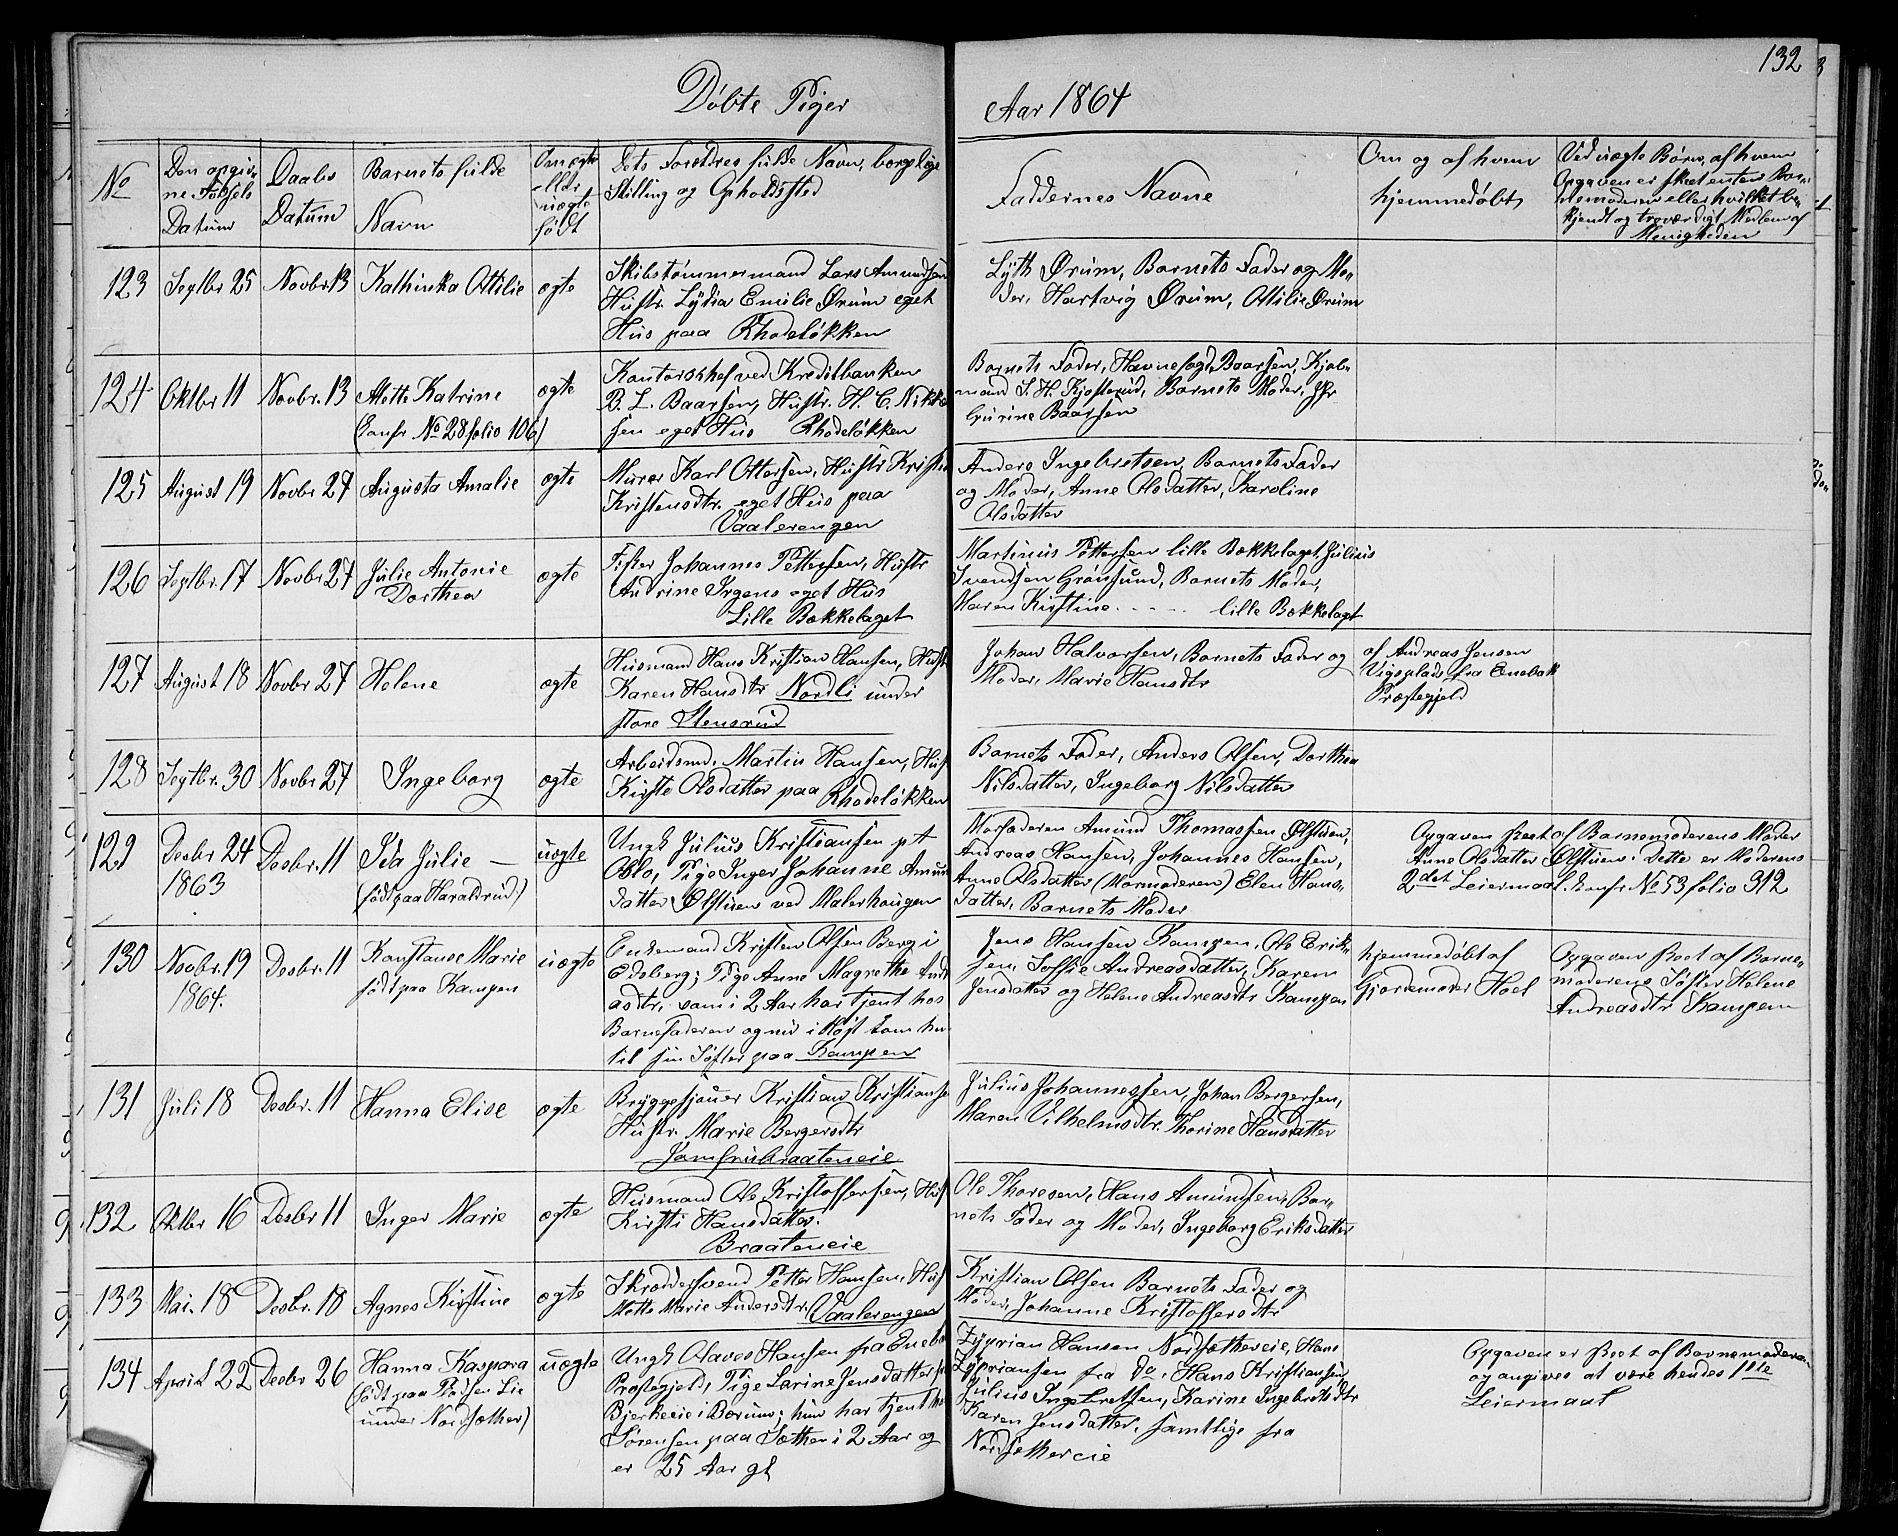 132
Døbte Piger
Aar 1864
No
Den opgiv-
ne Fødsels
Datum
Daabs
Datum
Barnets fulde
Navn
Om ægte
eller
uægte
født
Dets Forældres fulde Navn, borgelige
Stilling og Opholdssted
Faddernes Navne
Om og af hvem
hjemmedøbt
Ved uægte Børn, af hvem
Opgaven er skeet enten Bar-
nemoderen eller hvilket be-
kjendt og troværdigt Medlem af
Menigheden
123
Septbr 25
Novbr 13
Kathinka Ottilie
ægte
Skibstømmermand Lars Amundsen
Hustr. Lydia Emilie Ørum eget
Hus paa Rhodeløkken
Lyth Ørum, Barnets Fader og Mo-
der, Hartvig Ørum, Ottilie Ørum
124
Oktbr 11
Novbr. 13
Mette Katrine
(Conf. No 28 folio 106)
ægte
Kontorchef ved Kreditbanken
B. L. Baarsen, Hustr. H. C. Nikke
sen eget Hus Rhodeløkken
Barnets Fader, Havnefogd Baarsen, Kjøb-
mand S. H. Kjosterud, Barnets Moder, Jfr
Gurine Baarsen
125
August 19
Novbr 27
Augusta Amalie
ægte
Murer Karl Ottersen, Hustr Kristi
Kristensdtr. eget Hus paa
Vaalerengen
Anders Ingebretsen, Barnets Fader
og Moder, Anne Olsdatter, Karoline
Olsdatter
126
Septbr. 17
Novbr 27
Julie Antonie
Dorthea
ægte
Fisker Johannes Pettersen, Hustr
Andrine Irgens eget Hus
Lille Bækkelaget
Martinius Pettersen lille Bækkelaget, Julius
Svendsen Grønsund, Barnets Moder,
Maren Kristine - - - - lille Bækkelaget
127
August 18
Novbr 27
Helene
ægte
Husmand Hans Kristian Hansen, Hust
Karen Hansdtr Nordli under
store Stensrud
Johan Halvorsen, Barnets Fader og
Moder, Marie Hansdtr
af Andreas Jensen
Vigsplads fra Enebak
Præstegjeld
128
Septbr. 30
Novbr 27
Ingeborg
ægte
Arbeidsmd. Martin Hansen, Hus
Kirste Olsdatter paa Rhodeløkken
Barnets Fader, Anders Olsen, Dorthea
Nilsdatter, Ingeborg Nilsdatter
129
Desbr 24
1863
Desbr. 11
Ida Julie -
(født paa Haraldrud)
uægte
Ungk Julius Kristiansen pt
Oslo, Pige Inger Johanne Amun
datter Ølstuen ved Malerhaugen
Morfaderen Amund Thomassen Ølstuen,
Andreas Hansen, Johannes Hansen,
Anne Olsdatter (Mormoderen) Elen Hans-
datter, Barnets Moder
Opgaven skeet af Barnemoderens Moder
Anne Olsdatter Ølstuen. Dette er Moderens
2det Leiermaal. Conf. No 53 folio 312
130
Novbr. 19
1864.
Desbr. 11
Konstanse Marie
født paa Kampen
uægte
Enkemand Kristen Olsen Berg i
Eidsberg; Pige Anne Magrethe Andre
asdtr, som i 2 Aar har tjent hos
Barnefaderen og nu i Høst kom hun
til sin Søster paa Kampen
Jens Hansen Kampen, Ole Erik-
sen, Soffie Andreasdatter, Karen
Jensdatter og Helene Andreasdtr Kampen
hjemmedøbt af
Gjordemoder Hoel
Opgaven skeet af Barne-
moderens Søster Helene
Andreasdtr Kampen
131
Juli 18
Desbr. 11
Hanna Elise
ægte
Bryggesjauer Kristian Kristianse
Hustr. Marie Bergersdtr
Jomfrubraateneie
Julius Johannessen, Johan Bergersen,
Maren Vilhelmsdtr. Thorine Hansdatter
132
Oktbr 16
Desbr 11
Inger Marie
ægte
Husmand Ole Kristoffersen, Hus
Kirsti Hansdatter.
Braateneie
Ole Thoresen, Hans Amundsen, Bar-
nets Fader og Moder, Ingeborg Eriksdatter
133
Mai. 18
Desbr. 18
Agnes Kirstine
ægte
Skræddersvend Petter Hansen, Hus
Mette Marie Andersdtr. Vaalerengen
Kristian Olsen Barnets Fader og
Moder, Johanne Kristoffersdtr
134
April 22
Desbr 26
Hanna Kaspara
(født paa Pladsen Lie
under Nordsæther)
uægte
Ungk Olaves Hansen fra Eneba
Præstegjeld, Pige Larine Jensdatter fra
Bjerkeeie i Bærum; hun har tjent hos
Sørensen paa Sæther i 2 Aar og
er 25 Aar gl
Zyprian Hansen Nordsæthereie, Hans
Zypriansen fra do, Hans Kristiansen,
Julius Ingebretsen, Karine Ingebretsdtr
Karen Jensdatter, samtlige fra
Nordsæthereie
Opgaven er skeet af Barnemoderen
og angives at være hendes 1ste
Leiermaal